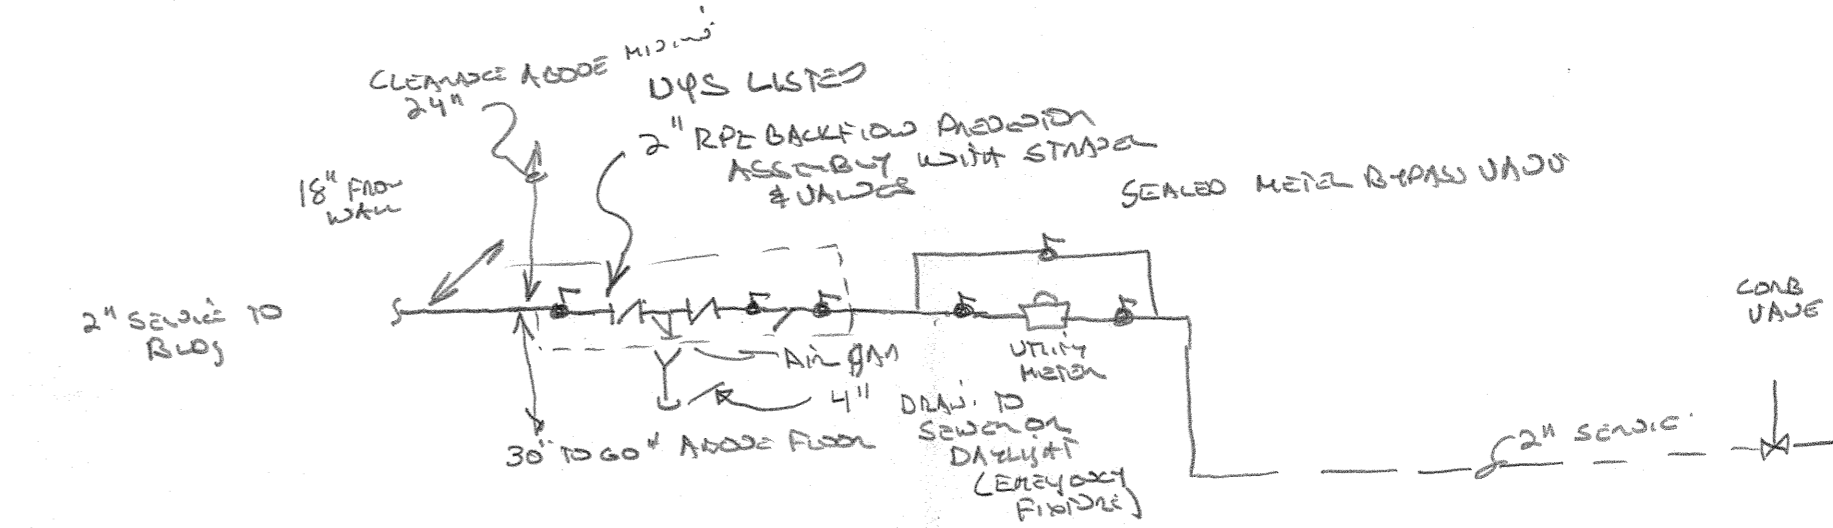 CLEARANCE ABOVE MIDIN'
24"
UYS LISTED
2" RPZ BACKFLOW PREVENTION
ASSEMBLY WITH STRAINER
& VALVES
18" FROM
WALL
SEALED METER BYPASS VALVE
2" SERVICE TO
BLDG
CORB
VALVE
AIR GAP
UTILITY
METER
4" DRAIN TO
SEWER OR
DAYLIGHT
(EMERGENCY
FIXTURE)
30" TO 60" ABOVE FLOOR
2" SERVICE